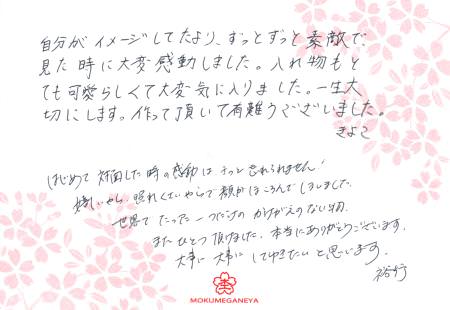 自分がイメージしてたより、ずっとずっと素敵で
見た時に大変感動しました。入れ物もと
ても可愛らしくて大変気に入りました。一生大
切にします。作って頂いて有難うございました。
きよこ
はじめて対面した時の感動はきっと忘れられません!
嬉しいやら、照れくさいやらで顔がほころんでしまいました。
世界でたった一つだけのかけがえのない物、
またひとつ頂けました。本当にありがとうございます。
大事に大事にしてゆきたいと思います。
裕行
MOKUMEGANEYA